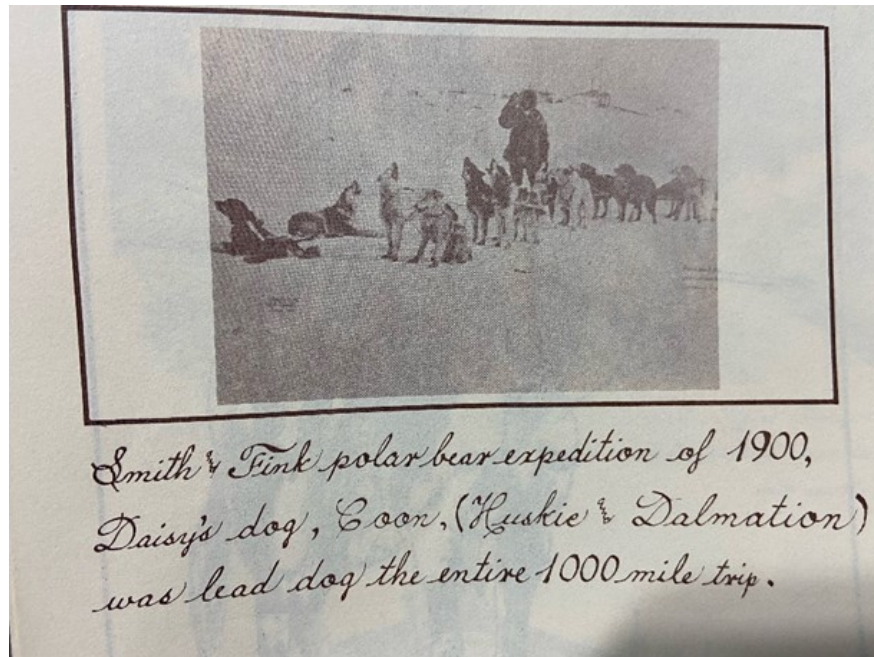 Smith & Fink polar bear expedition of 1900,
Daisy's dog, Coon, (Huskie & Dalmation)
was lead dog the entire 1000 mile trip.